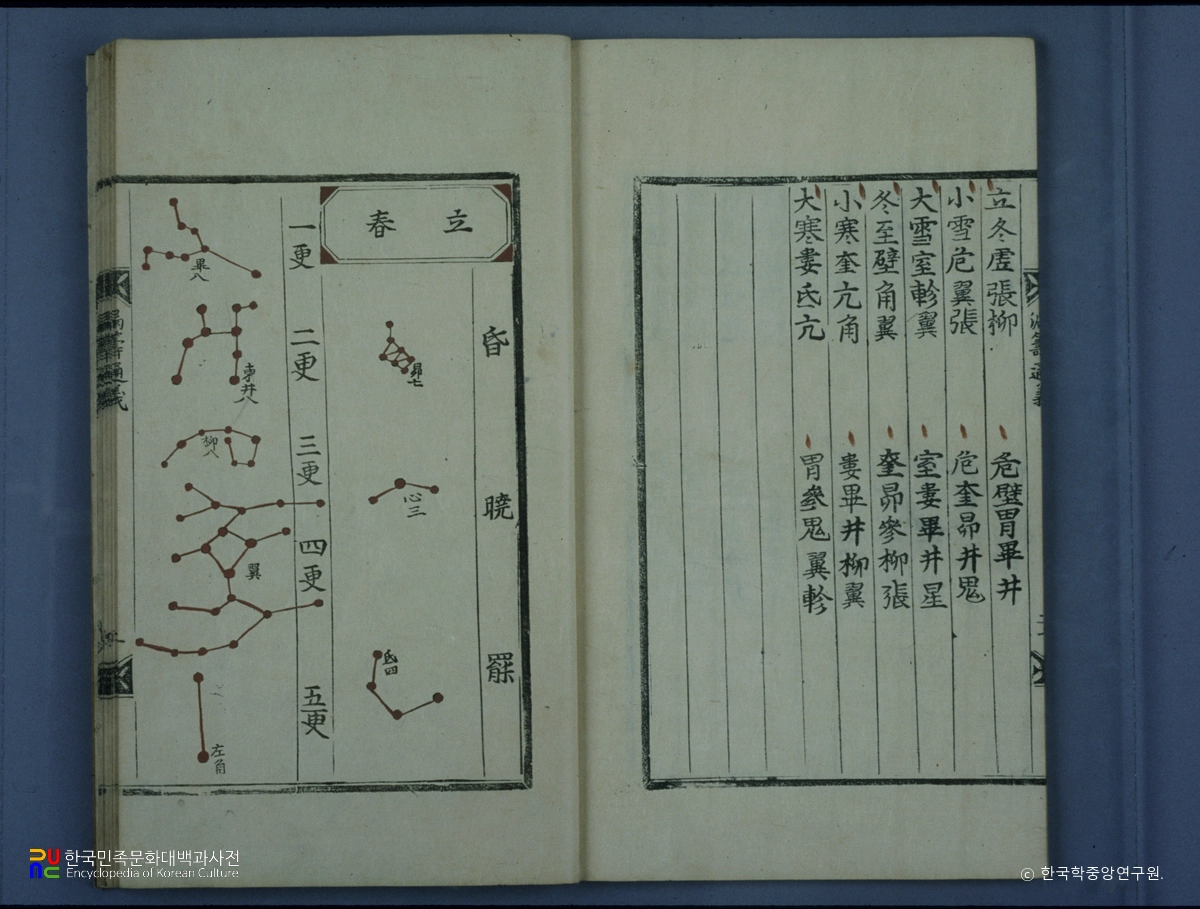 立冬虚張柳
危壁胃畢井
小雪危翼張
危奎昴井鬼
大雪室軫翼
室婁畢井星
冬至壁角翼
奎昴參柳張
小寒奎亢角
婁畢井柳翼
大寒婁氐亢
胃參鬼翼軫
立春
昏
曉
罷
昴七
心三
氐四
一更
二更
三更
四更
五更
畢八
東井八
柳八
翼
左角
한국민족문화대백과사전
Encyclopedia of Korean Culture
ⓒ 한국학중앙연구원.